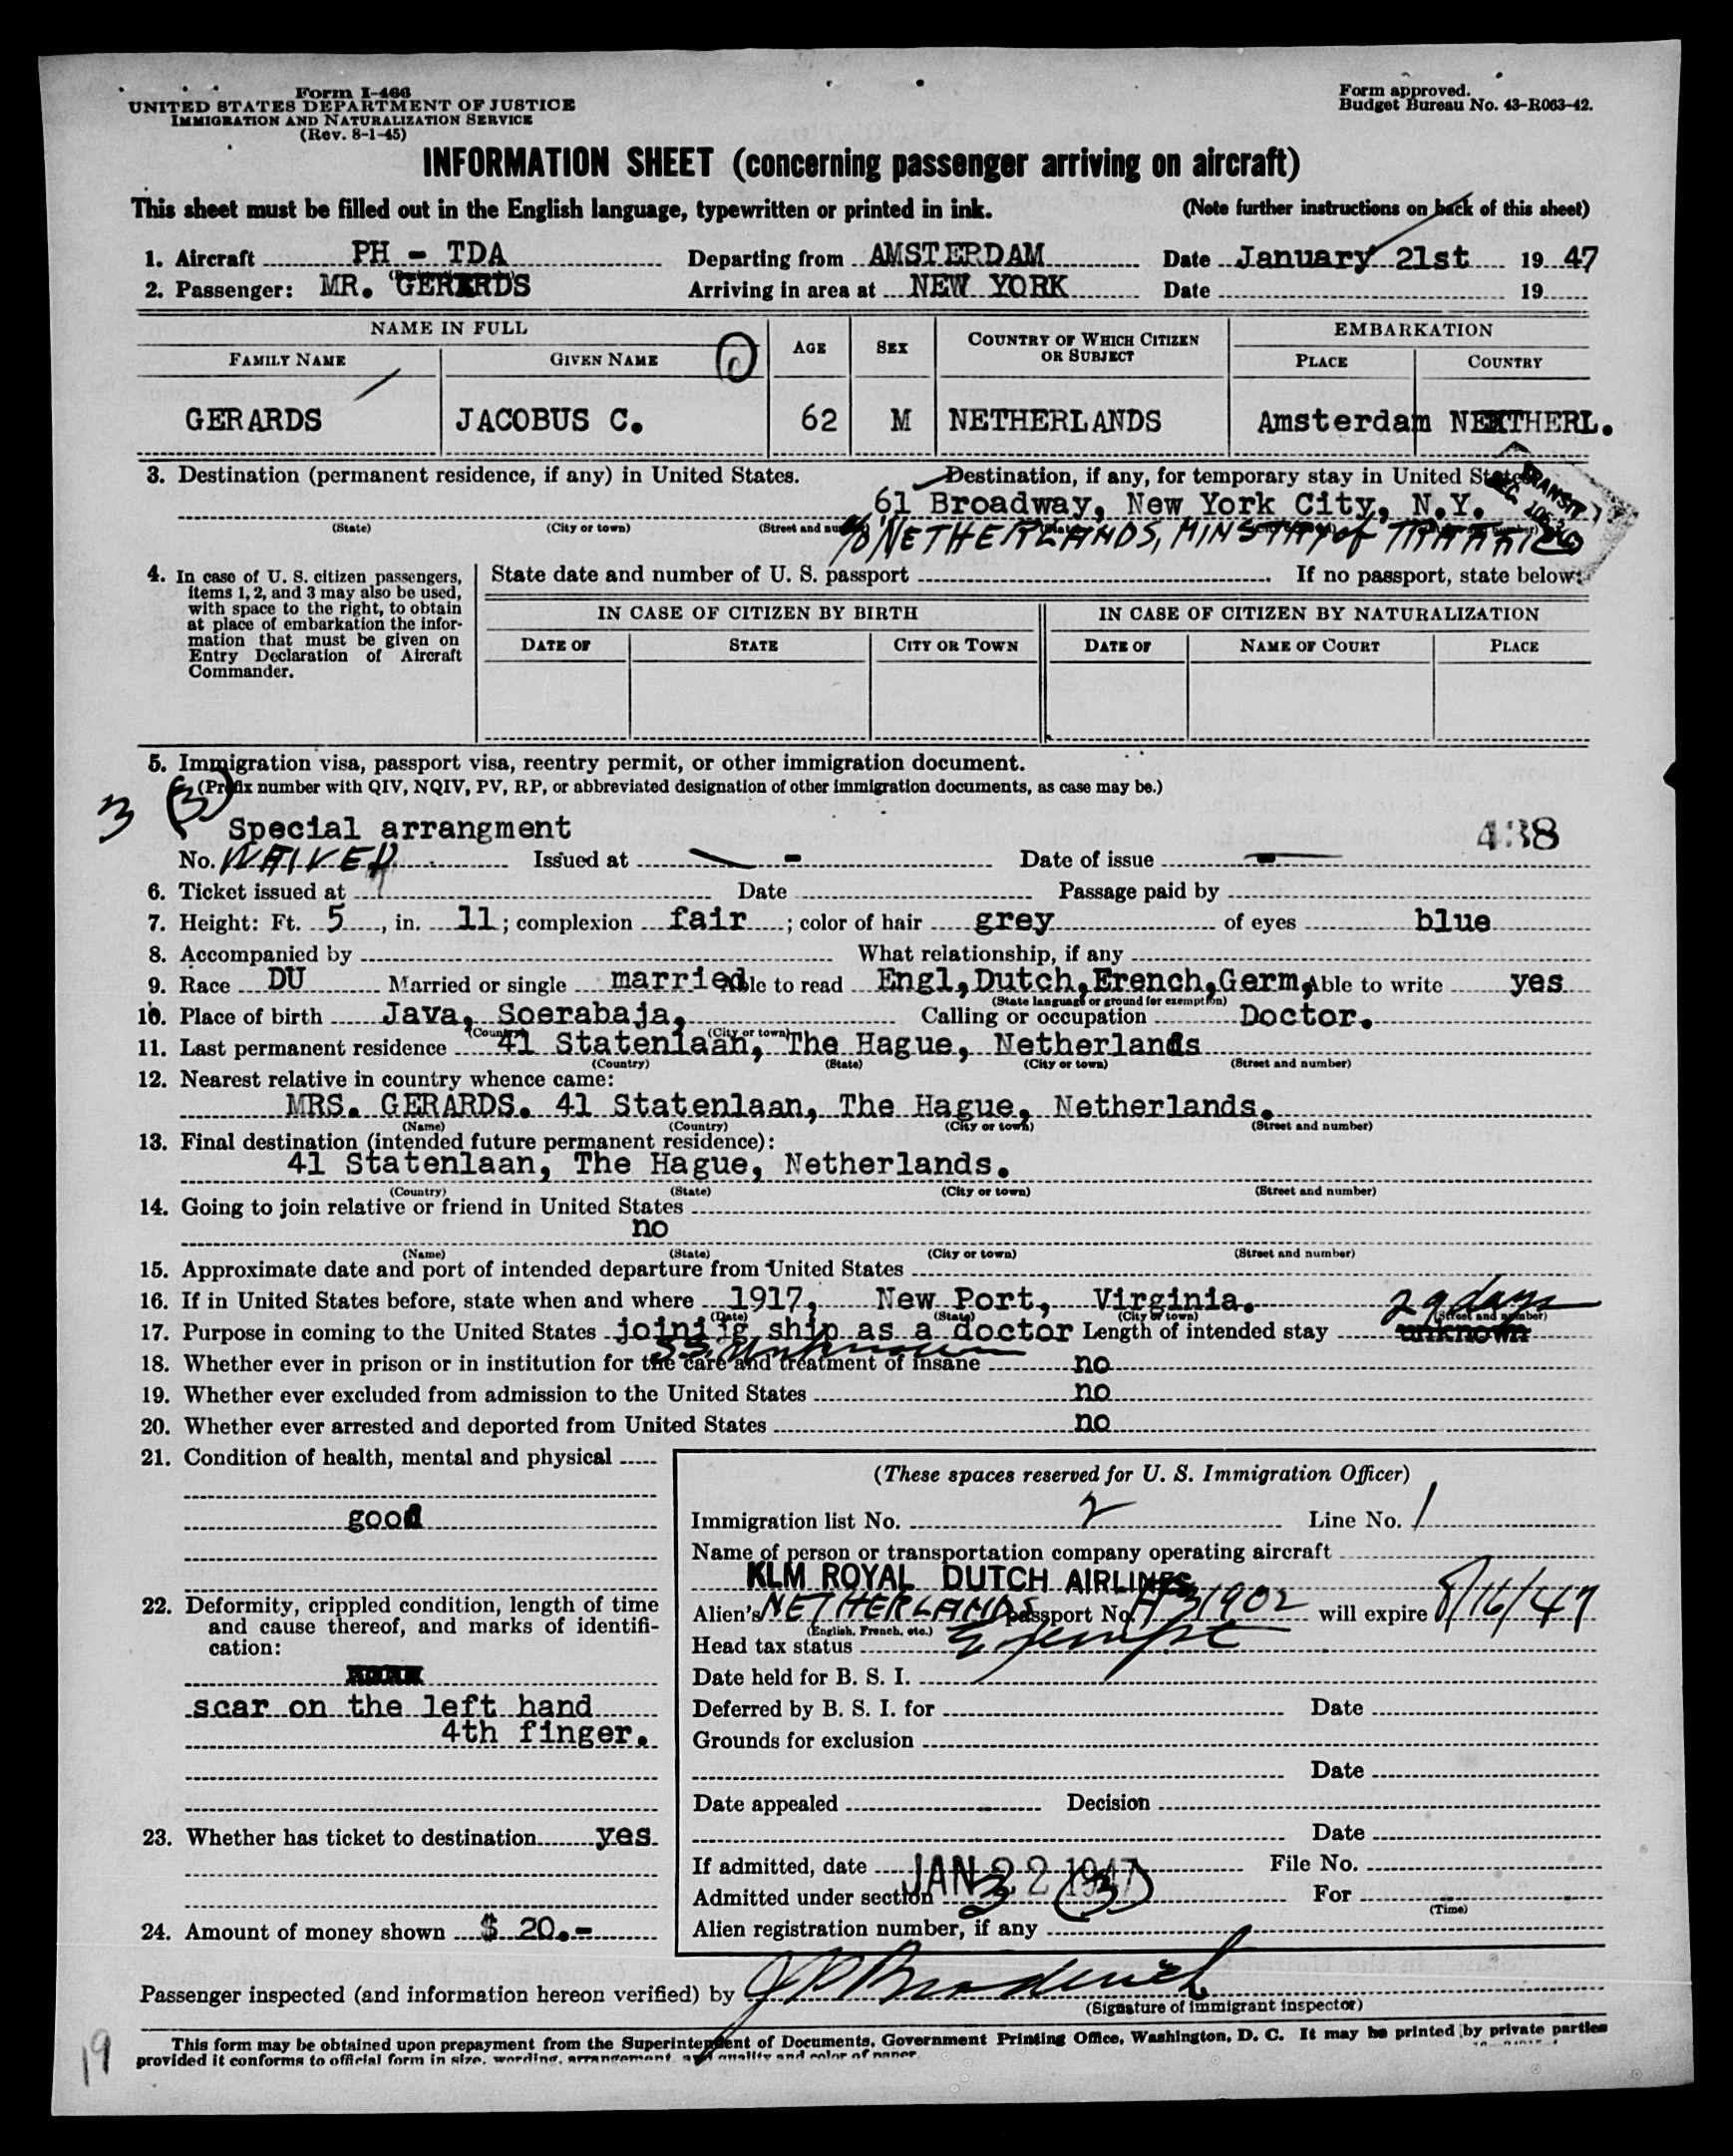 Form I-466
UNITED STATES DEPARTMENT OF JUSTICE
IMMIGRATION AND NATURALIZATION SERVICE
(Rev. 8-1-45)
Form approved.
Budget Bureau No. 43-R063-42.
INFORMATION SHEET (concerning passenger arriving on aircraft)
This sheet must be filled out in the English language, typewritten or printed in ink. (Note further instructions on back of this sheet)
1. Aircraft PH - TDA Departing from AMSTERDAM Date January 21st 1947
2. Passenger: MR. GERARDS Arriving in area at NEW YORK Date 19
NAME IN FULL AGE SEX COUNTRY OF WHICH CITIZEN OR SUBJECT EMBARKATION
FAMILY NAME GIVEN NAME PLACE COUNTRY
GERARDS JACOBUS C. 62 M NETHERLANDS Amsterdam NETHERL.
3. Destination (permanent residence, if any) in United States. Destination, if any, for temporary stay in United States
61 Broadway, New York City, N.Y.
(State) (City or town) (Street and number)
c/o NETHERLANDS, MINSTRY of TRAFFIC
TRANSIT
4. In case of U. S. citizen passengers, items 1, 2, and 3 may also be used, with space to the right, to obtain at place of embarkation the information that must be given on Entry Declaration of Aircraft Commander.
State date and number of U. S. passport If no passport, state below:
IN CASE OF CITIZEN BY BIRTH IN CASE OF CITIZEN BY NATURALIZATION
DATE OF STATE CITY OR TOWN DATE OF NAME OF COURT PLACE
5. Immigration visa, passport visa, reentry permit, or other immigration document.
(Prefix number with QIV, NQIV, PV, RP, or abbreviated designation of other immigration documents, as case may be.)
3 (3)
Special arrangment 438
No. WAIVED Issued at - Date of issue -
6. Ticket issued at Date Passage paid by
7. Height: Ft. 5, in. 11; complexion fair; color of hair grey of eyes blue
8. Accompanied by What relationship, if any
9. Race DU Married or single married Able to read Engl, Dutch, French, Germ, Able to write yes
(State language or ground for exemption)
10. Place of birth Java, Soerabaja, Calling or occupation Doctor.
(Country) (City or town)
11. Last permanent residence 41 Statenlaan, The Hague, Netherlands
(Country) (State) (City or town) (Street and number)
12. Nearest relative in country whence came:
MRS. GERARDS. 41 Statenlaan, The Hague, Netherlands.
(Name) (Country) (City or town) (Street and number)
13. Final destination (intended future permanent residence):
41 Statenlaan, The Hague, Netherlands.
(Country) (State) (City or town) (Street and number)
14. Going to join relative or friend in United States
no
(Name) (State) (City or town) (Street and number)
15. Approximate date and port of intended departure from United States
16. If in United States before, state when and where 1917, New Port, Virginia.
(Date) (State) (City or town) (Street and number)
29 days
17. Purpose in coming to the United States joining ship as a doctor Length of intended stay unknown
SS. Unknown
18. Whether ever in prison or in institution for the care and treatment of insane no
19. Whether ever excluded from admission to the United States no
20. Whether ever arrested and deported from United States no
21. Condition of health, mental and physical
good
22. Deformity, crippled condition, length of time and cause thereof, and marks of identification:
scar on the left hand
4th finger.
23. Whether has ticket to destination yes
24. Amount of money shown $ 20.-
(These spaces reserved for U. S. Immigration Officer)
Immigration list No. 2 Line No. 1
Name of person or transportation company operating aircraft
KLM ROYAL DUTCH AIRLINES
Alien's NETHERLANDS passport No. H31902 will expire 8/16/47
(English, French, etc.)
Head tax status Exempt
Date held for B. S. I.
Deferred by B. S. I. for Date
Grounds for exclusion
Date
Date appealed Decision
Date
If admitted, date JAN 22 1947 File No.
Admitted under section 3 (3) For
(Time)
Alien registration number, if any
Passenger inspected (and information hereon verified) by
(Signature of immigrant inspector)
This form may be obtained upon prepayment from the Superintendent of Documents, Government Printing Office, Washington, D. C. It may be printed by private parties
provided it conforms to official form in size, wording, arrangement, and quality and color of paper.
19